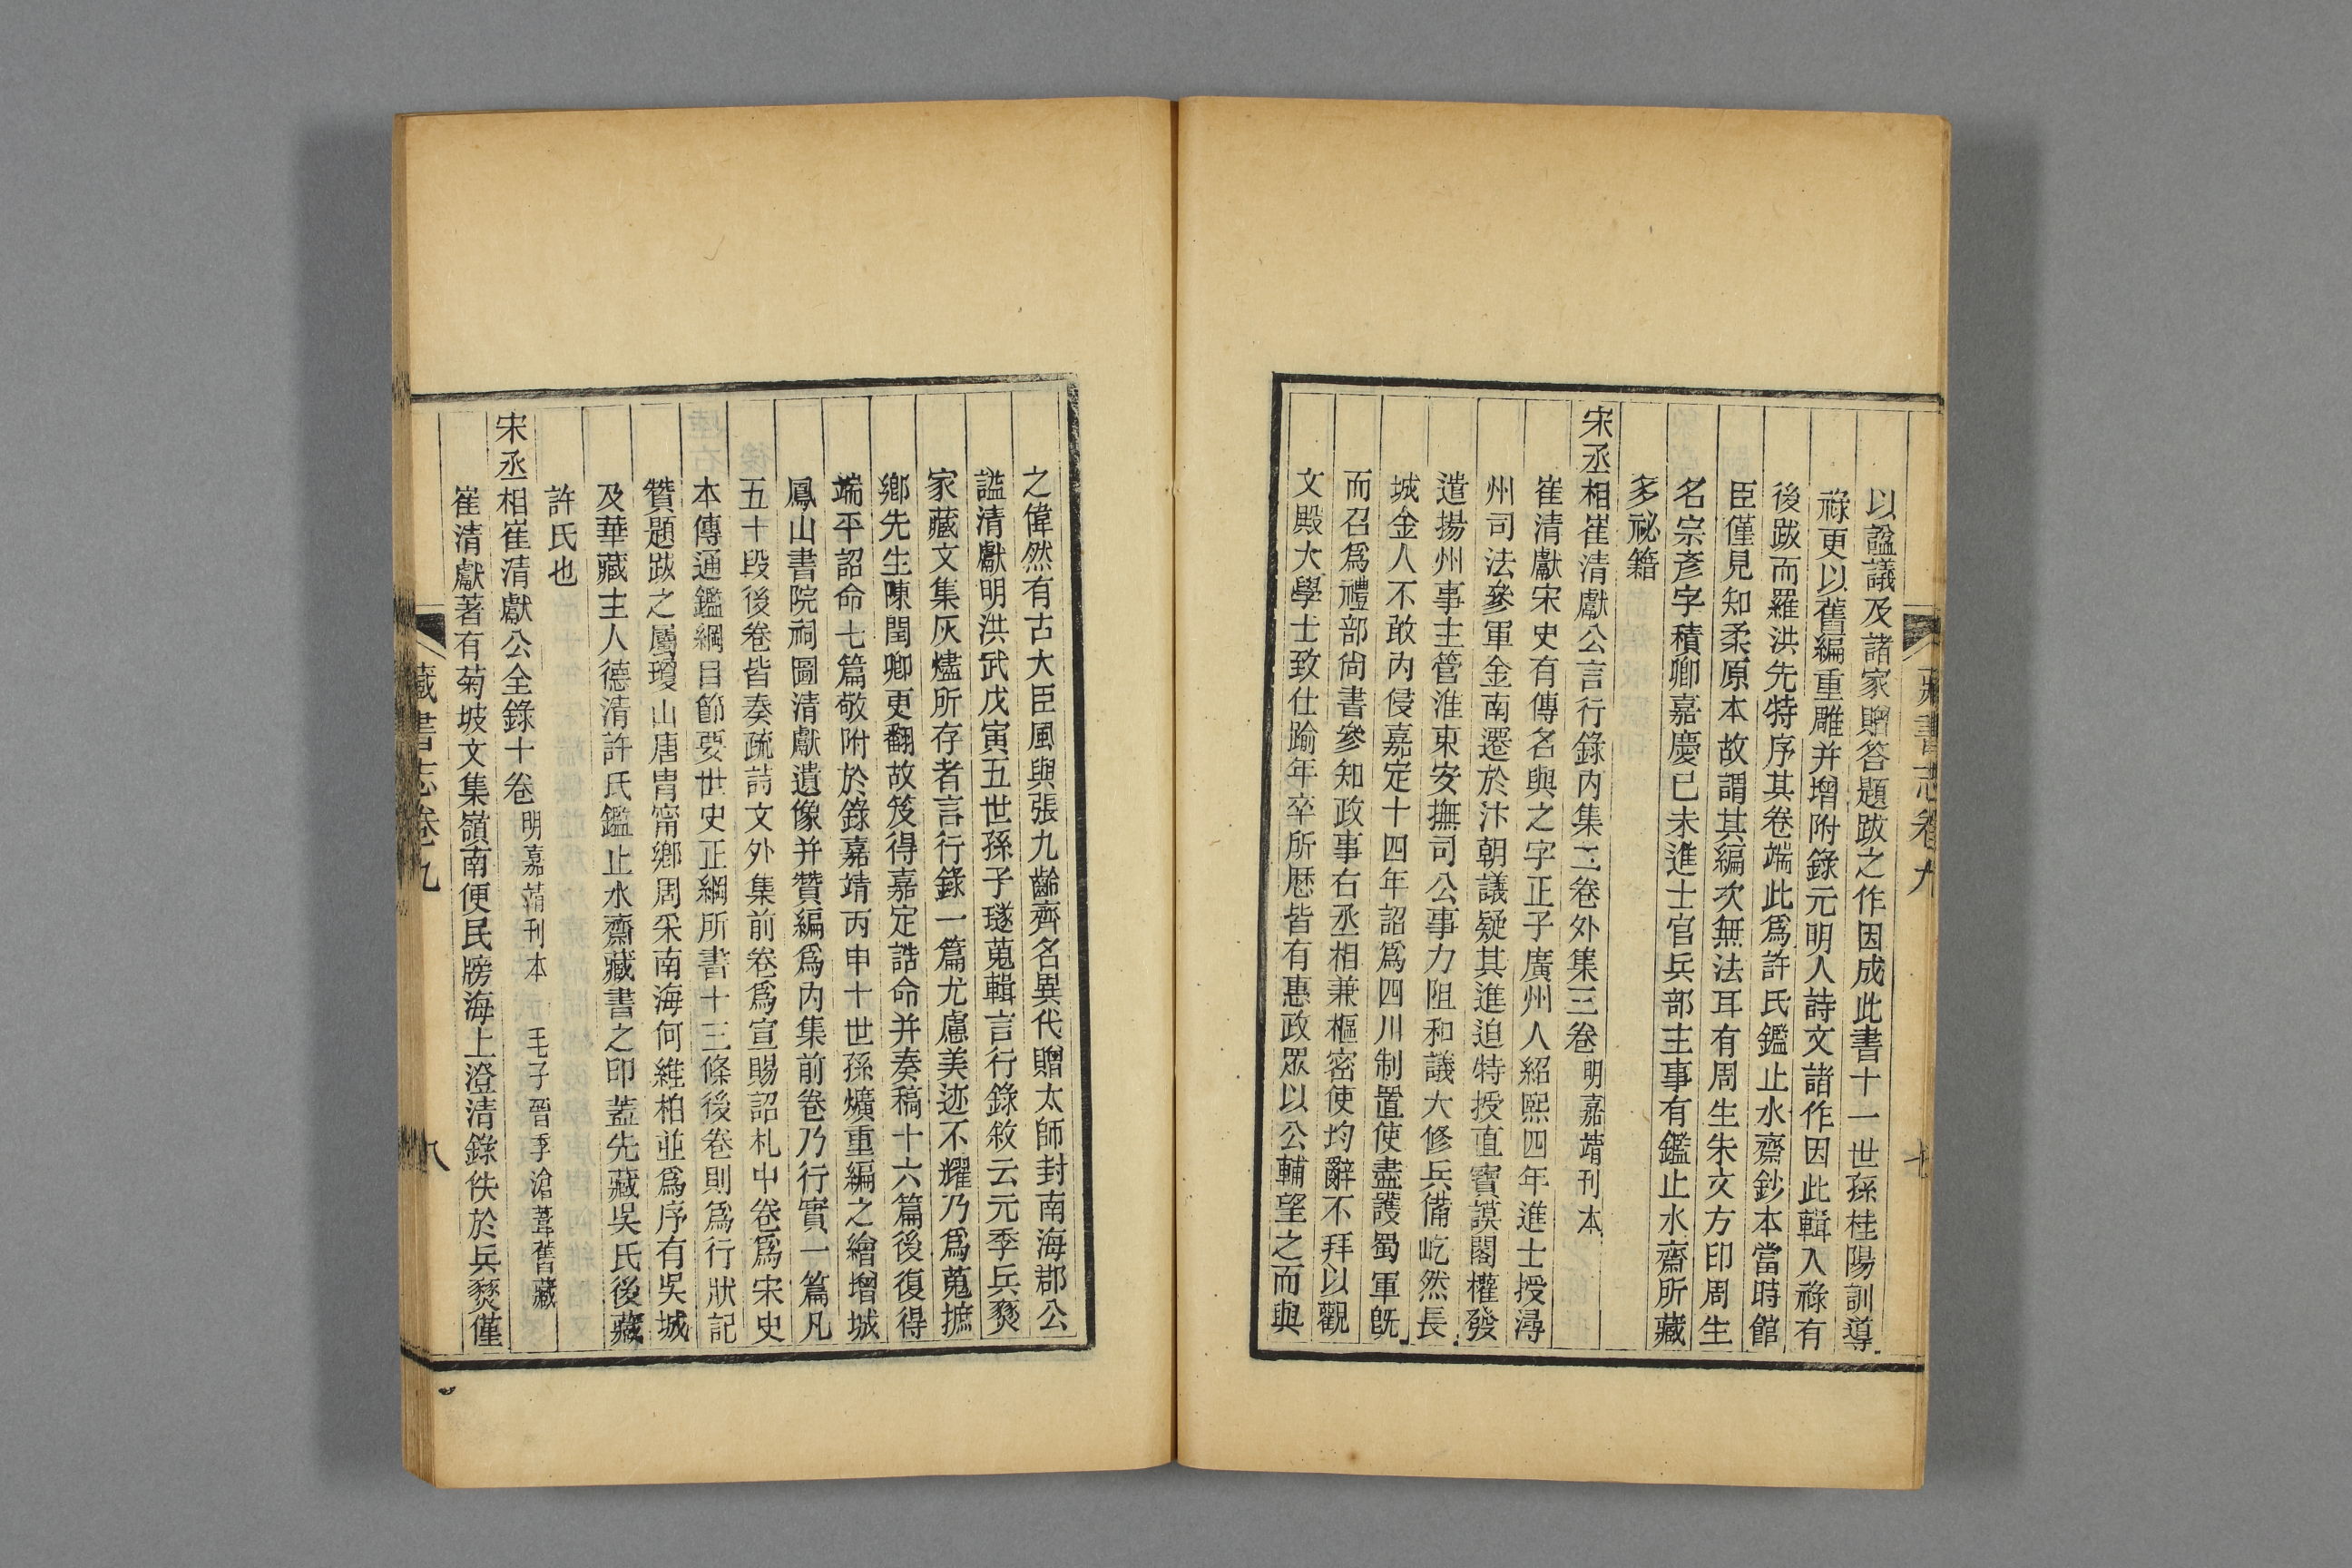 以諡議及諸家贈答題跋之作因成此書十一世孫桂陽訓導
祿更以舊編重雕并增附錄元明人詩文諸作因此輯入祿有
後跋而羅洪先特序其卷端此爲許氏鑑止水齋鈔本當時館
臣僅見知柔原本故謂其編次無法耳有周生朱文方印周生
名宗彥字積卿嘉慶已未進士官兵部主事有鑑止水齋所藏
多祕籍
宋丞相崔清獻公言行錄内集二卷外集三卷明嘉靖刊本
崔清獻宋史有傳名與之字正子廣州人紹熙四年進士授潯
州司法參軍金南遷於汴朝議疑其進迫特授直寶謨閣權發
遣揚州事主管淮東安撫司公事力阻和議大修兵備屹然長
城金人不敢内侵嘉定十四年詔爲四川制置使盡護蜀軍旣
而召爲禮部尙書參知政事右丞相兼樞密使均辭不拜以觀
文殿大學士致仕踰年卒所歷皆有惠政眾以公輔望之而與
藏書志卷九
之偉然有古大臣風與張九齡齊名異代贈太師封南海郡公
諡清獻明洪武戊寅五世孫子璲蒐輯言行錄敘云元季兵燹
家藏文集灰燼所存者言行錄一篇尤慮美迹不耀乃爲蒐摭
鄉先生陳閏卿更翻故笈得嘉定誥命并奏稿十六篇後復得
端平詔命七篇敬附於錄嘉靖丙申十世孫爌重編之繪增城
鳳山書院祠圖清獻遺像并贊編爲内集前卷乃行實一篇凡
五十段後卷皆奏疏詩文外集前卷爲宣賜詔札中卷爲宋史
本傳通鑑綱目節要世史正綱所書十三條後卷則爲行狀記
贊題跋之屬瓊山唐冑甯鄉周采南海何維柏並爲序有吳城
及華藏主人德清許氏鑑止水齋藏書之印葢先藏吳氏後藏
許氏也
宋丞相崔清獻公全錄十卷明嘉靖刊本 毛子晉季滄葦舊藏
崔清獻著有菊坡文集嶺南便民牓海上澄清錄佚於兵燹僅
藏書志卷九 八